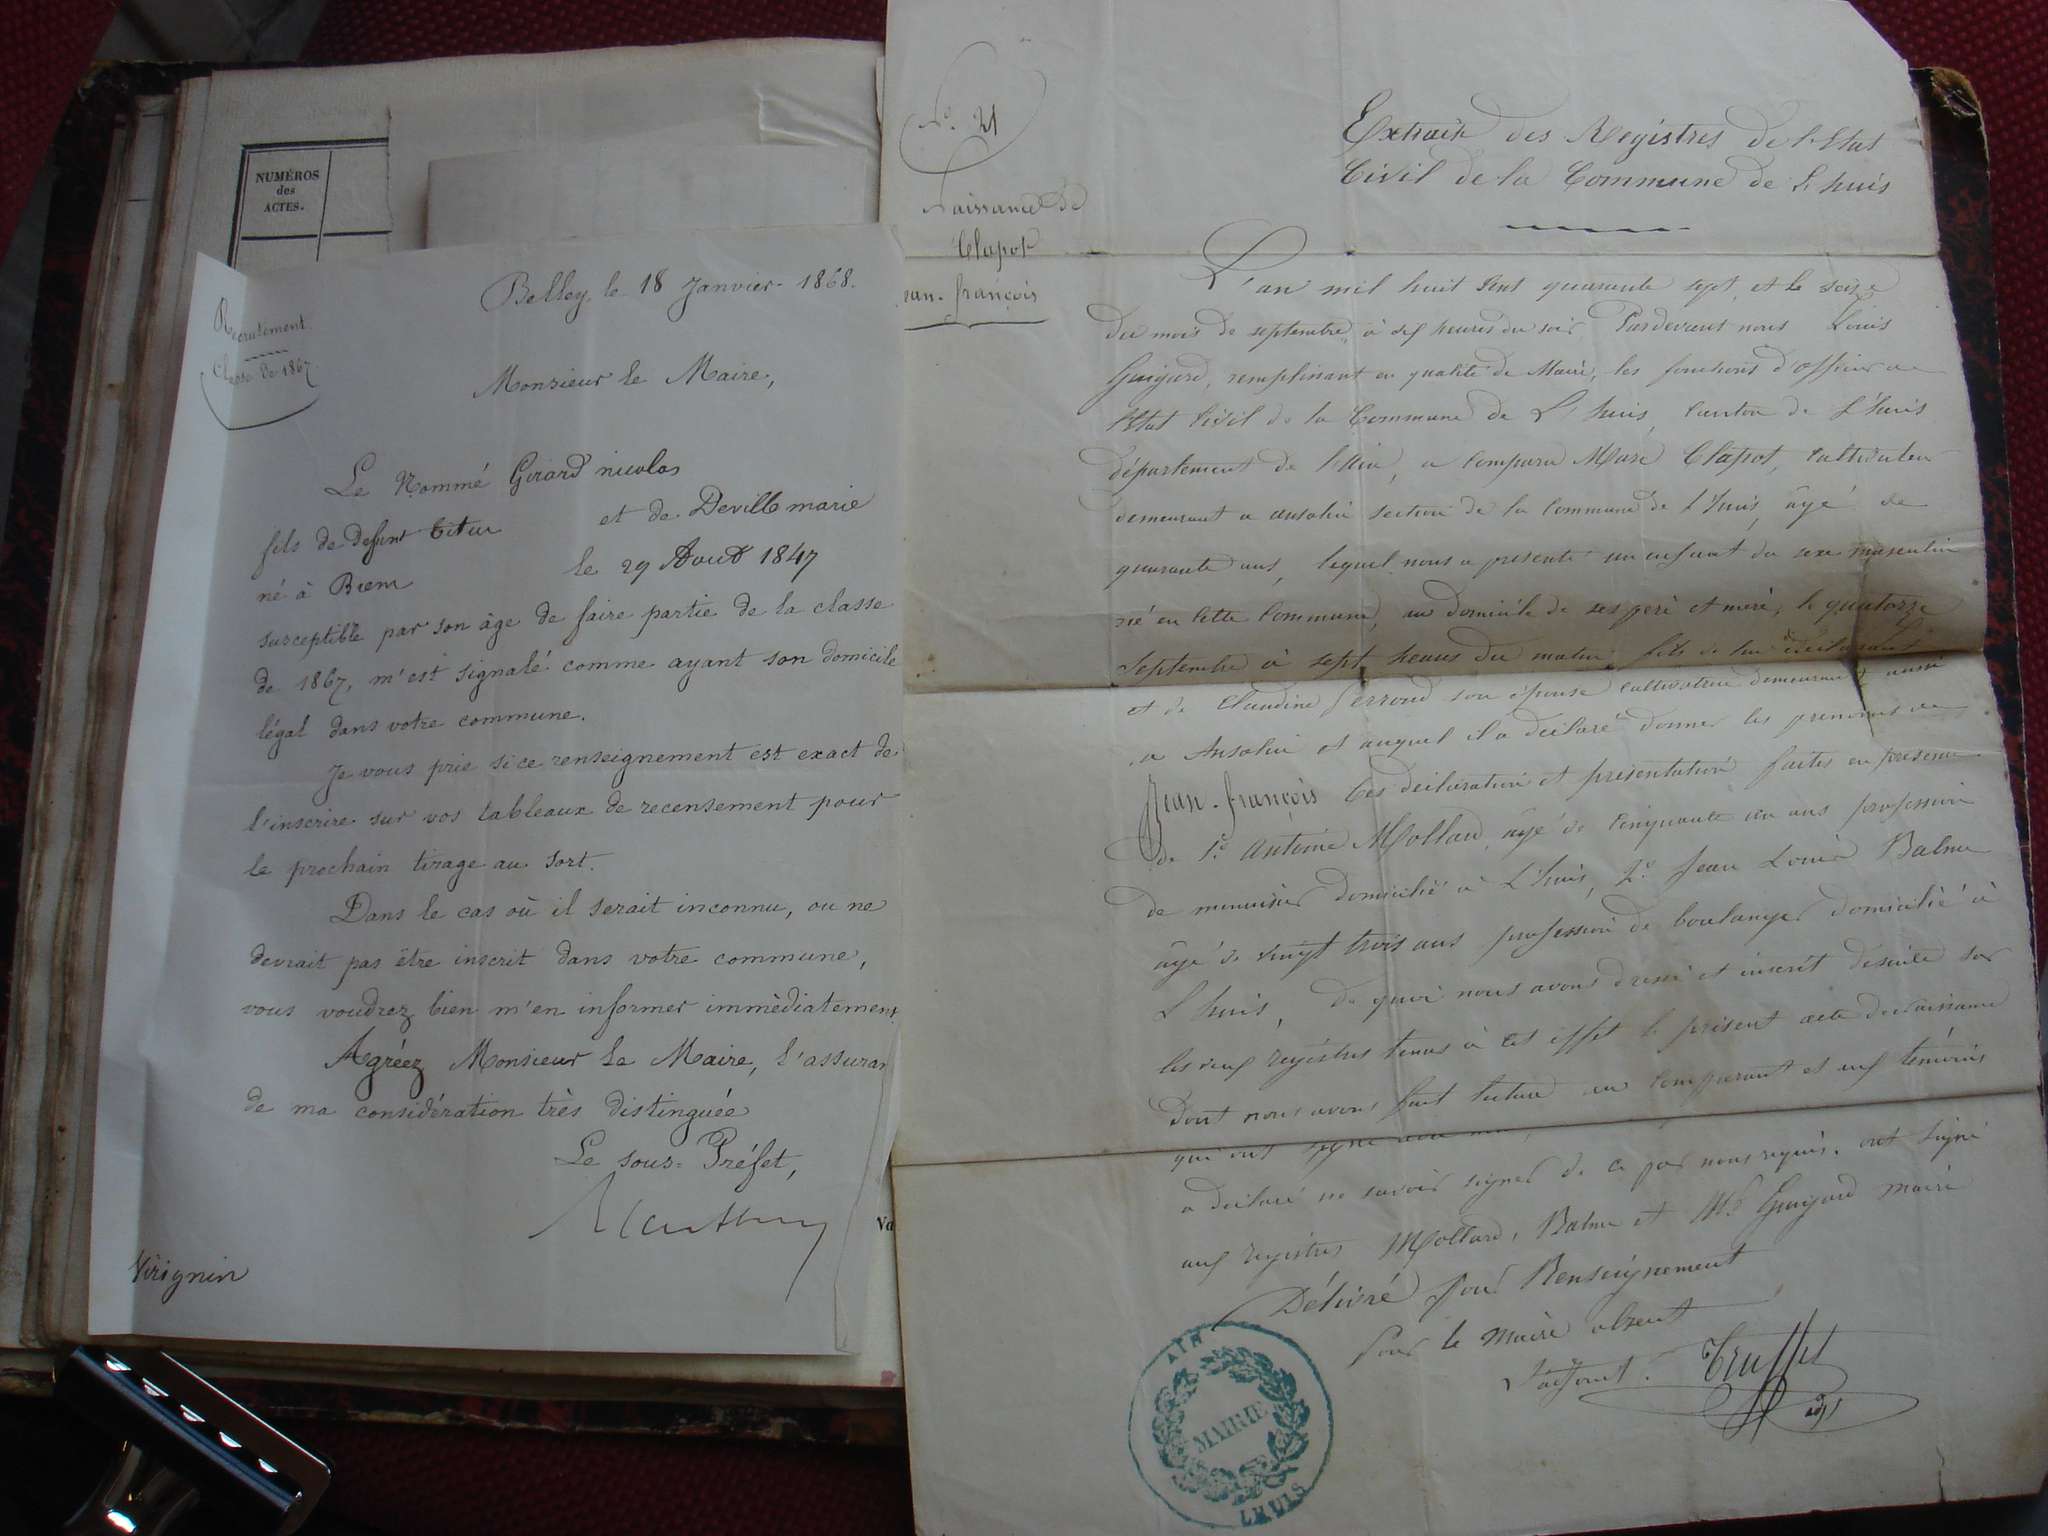 NUMÉROS
des
ACTES.
Recrutement.
Classe de 1867.
Belley, le 18 Janvier 1868.
Monsieur le Maire,
Le Nommé Girard nicolas
fils de defunt et de Deville marie
né à le 29 Aout 1847
susceptible par son âge de faire partie de la classe
de 1867, m'est signalé comme ayant son domicile
légal dans votre commune.
Je vous prie si ce renseignement est exact de
l'inscrire sur vos tableaux de recensement pour
le prochain tirage au sort.
Dans le cas où il serait inconnu, ou ne
devrait pas être inscrit dans votre commune,
vous voudrez bien m'en informer immédiatement
Agréez Monsieur le Maire, l'assuran
de ma considération très distinguée
Le sous-Préfet,
Virignin
No. 21
Naissance de
Clapot
Jean-françois
Extrait des Registres de l'Etat
Civil de la Commune de Lhuis
L'an mil huit cent quarante sept et le seize
du mois de septembre, à heures du soir, Pardevant nous Louis
Guigard, remplissant en qualité de Maire, les fonctions d'officier de
l'Etat Civil de la Commune de L'huis, canton de L'huis
département de l'Ain, a comparu Marc Clapot, cultivateur
demeurant a ansolin section de la commune de L'huis, âgé de
quarante ans, lequel nous a presenté un enfant du sexe masculin
né en cette commune, au domicile de ses père et mère, le quatorze
septembre à sept heures du matin, fils de lui déclarant
et de Claudine Perroud son épouse cultivatrice demeurant aussi
a Ansolin et auquel il a déclaré donner les prenoms de
Jean-françois Ces déclaration et présentation faites en présence
de 1o. Antoine Mollard, âgé de cinquante un ans profession
de menuisier domicilié à L'huis, 2o. Jean Louis Balme
âgé de vingt trois ans profession de boulanger domicilié à
L'huis, de quoi nous avons dressé et inscrit desuite sur
les deux registres tenus à cet effet le présent acte de naissance
dont nous avons fait lecture au comparant et aux temoins
qui ont signé avec
a déclaré ne savoir signer de ce par nous requis. ont signé
aux registres Mollard, Balme et Guigard maire
Délivré pour Renseignement
Pour le maire absent
L'adjoint. Truffet
AIN
MAIRIE
LHUIS